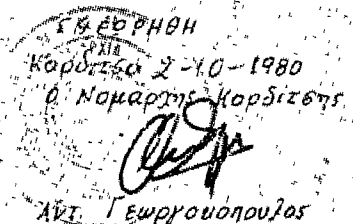 ΕΝΕΚΡΗΘΗ
Καρδίτσα 2-10-1980
Ο Νομάρχης Καρδίτσης
Αντ. Γεωργακόπουλος